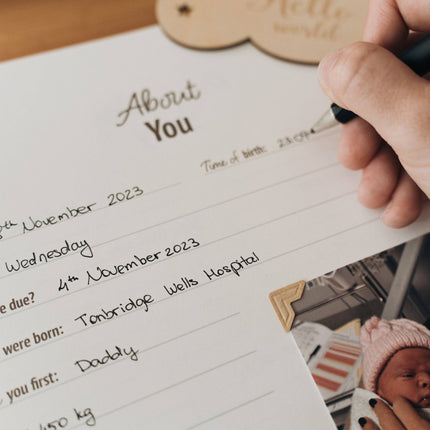 Hello
world
About
You
Time of birth: 23:0
November 2023
Wednesday
e due? 4th November 2023
were born: Tonbridge Wells Hospital
you first: Daddy
450 kg